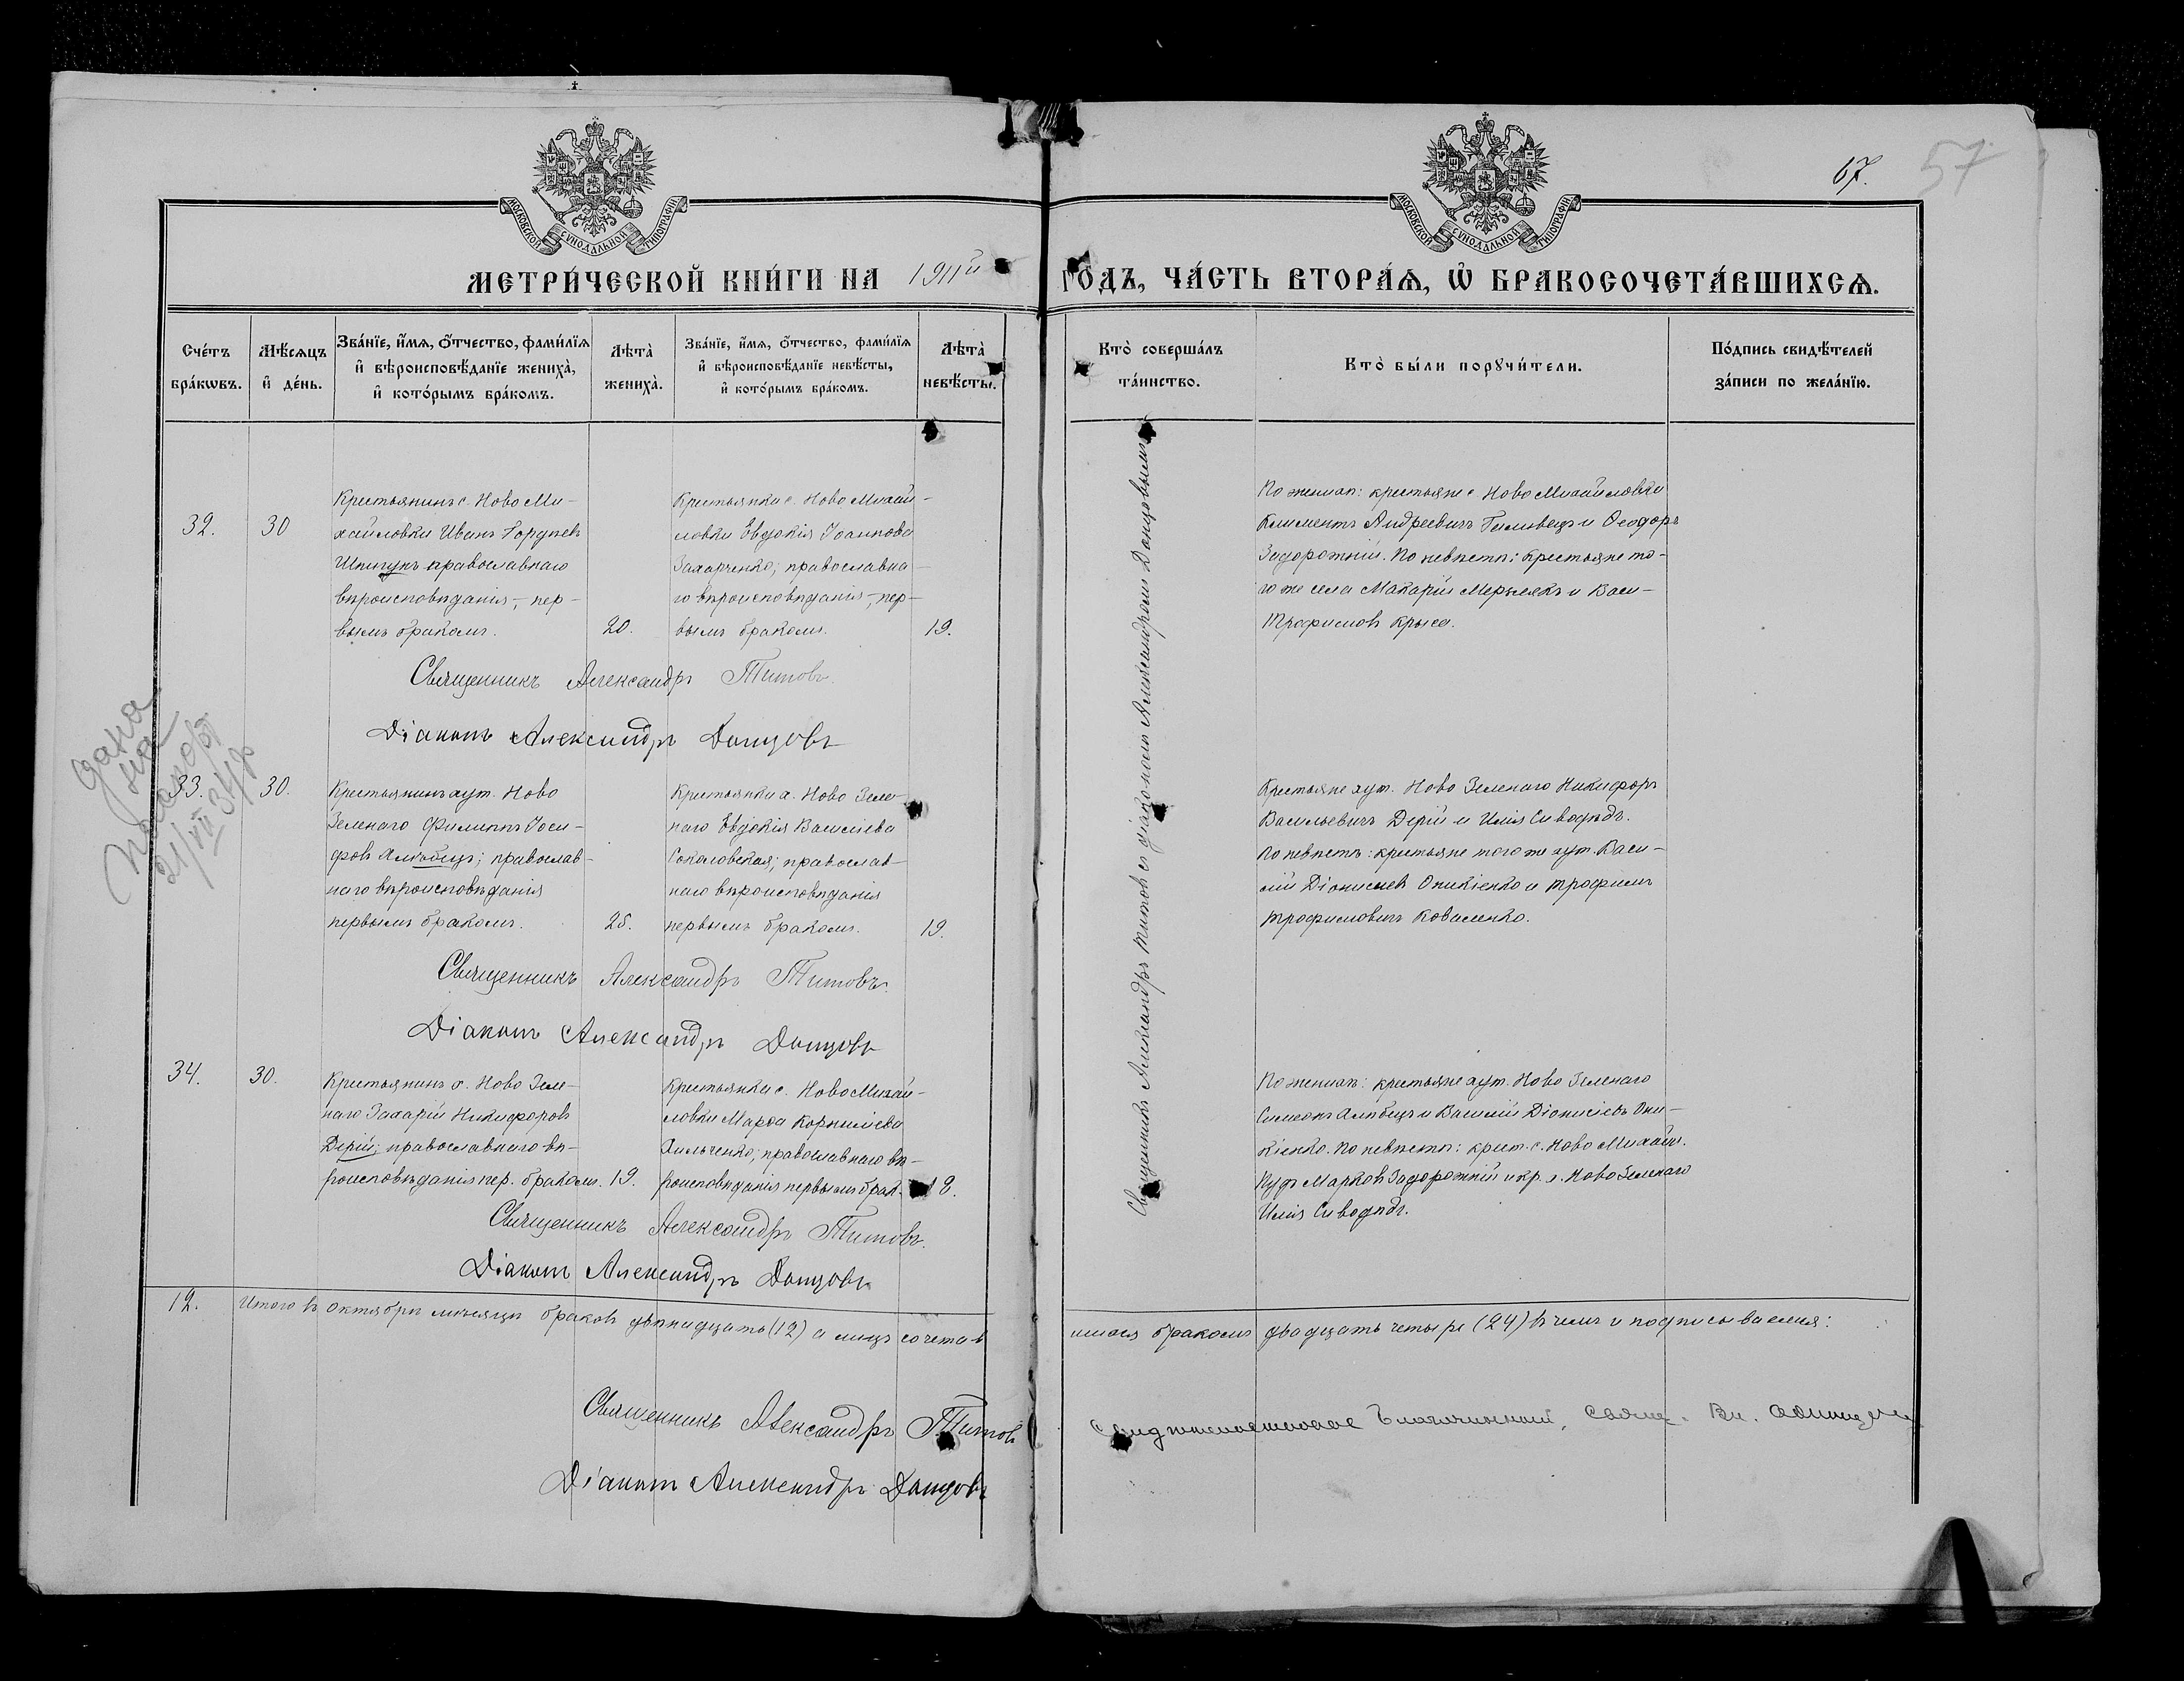 67.
57
МОСКОВСКОЙ СѴНОДАЛЬНОЙ ТИПОГРАФІИ
МОСКОВСКОЙ СѴНОДАЛЬНОЙ ТИПОГРАФІИ
МЕТРИ́ЧЕСКОЙ КНИ́ГИ НА 1911й ГО́ДЪ, ЧА́СТЬ ВТОРА́Ѧ, Ѡ҆ БРАКОСОЧЕТА́ВШИХСѦ.
Сче́тъ бра́кѡвъ.
Мѣ́сѧцъ и҆ де́нь.
Зва́нїе, и҆́мѧ, ѻ҆́тчество, фами́лїѧ и҆ вѣроисповѣ́данїе жениха̀, и҆ кото́рымъ бра́комъ.
Лѣта̀ жениха̀.
Зва́нїе, и҆́мѧ, ѻ҆́тчество, фами́лїѧ и҆ вѣроисповѣ́данїе невѣ́сты, и҆ кото́рымъ бра́комъ.
Лѣта̀ невѣ́сты.
Кто̀ соверша́лъ та́инство.
Кто̀ бы́ли порꙋчи́тели.
По́дпись свидѣ́телей за́писи по жела́нїю.
32.
30
Крестьянинъ с. Ново Ми-
хайловки Иванъ Гордѣевъ
Шпигунъ православнаго
вѣроисповѣданія, пер-
вымъ бракомъ.
20.
Крестьянка с. Ново Михай-
ловки Евдокія Іоаннова
Захарченко; православна-
го вѣроисповѣданія, пер-
вымъ бракомъ.
19.
По женихѣ: крестьяне с Ново Михайловки
Климентъ Андреевичъ и Ѳеодоръ
Задорожній. По невѣстѣ: крестьяне то-
го же села Макарій Мерзлякъ и Васи-
Трофимовъ Крыса.
Священникъ Александръ Титовъ.
Діаконъ Александръ Донцовъ
Дана
на
21/VII 34 г
33.
30.
Крестьянинъ хут. Ново
Зеленаго Филиппъ Іоси-
фовъ Ялпѣецъ; православ-
наго вѣроисповѣданія
первымъ бракомъ.
25.
Крестьянка х. Ново Зеле-
наго Евдокія Василіева
Соколовская; православ-
наго вѣроисповѣданія
первымъ бракомъ.
19.
Крестьяне хут. Ново Зеленаго Никифоръ
Васильевичъ Дерій и Илія Сиводѣдъ.
По невѣстѣ: крестьяне того же хут. Васи-
лій Діонисіевъ Оникіенко и Трофимъ
Трофимовичъ Коваленко.
Священникъ Александръ Титовъ.
Діаконъ Александръ Донцовъ
34.
30.
Крестьянинъ х. Ново Зеле-
наго Захарій Никифоровъ
Дерій; православнаго вѣ-
роисповѣданія пер. бракомъ.
19.
Крестьянка с. Ново Михай-
ловки Марѳа Корниліева
Хильченко; православнаго вѣ-
роисповѣданія первымъ брак.
18.
По женихѣ: крестьяне хут. Ново Зеленаго
Симеонъ и Василій Діонисіевъ Они-
кіенко. По невѣстѣ: крест. с. Ново Михайл.
Марковъ Задорожній и кр. х. Ново Зеленаго
Илія Сиводѣдъ.
Священникъ Александръ Титовъ.
Діаконъ Александръ Донцовъ
Священникъ Александръ Титовъ съ діакономъ Александромъ Донцовымъ
12.
Итого въ октябрѣ мѣсяцѣ браковъ двѣнадцать (12) а лицъ сочетав
шихся бракомъ двадцать четыре (24) въ чемъ и подписываемся:
Священникъ Александръ Титовъ
Діаконъ Александръ Донцовъ
Благочинный, Свящ. Вл.